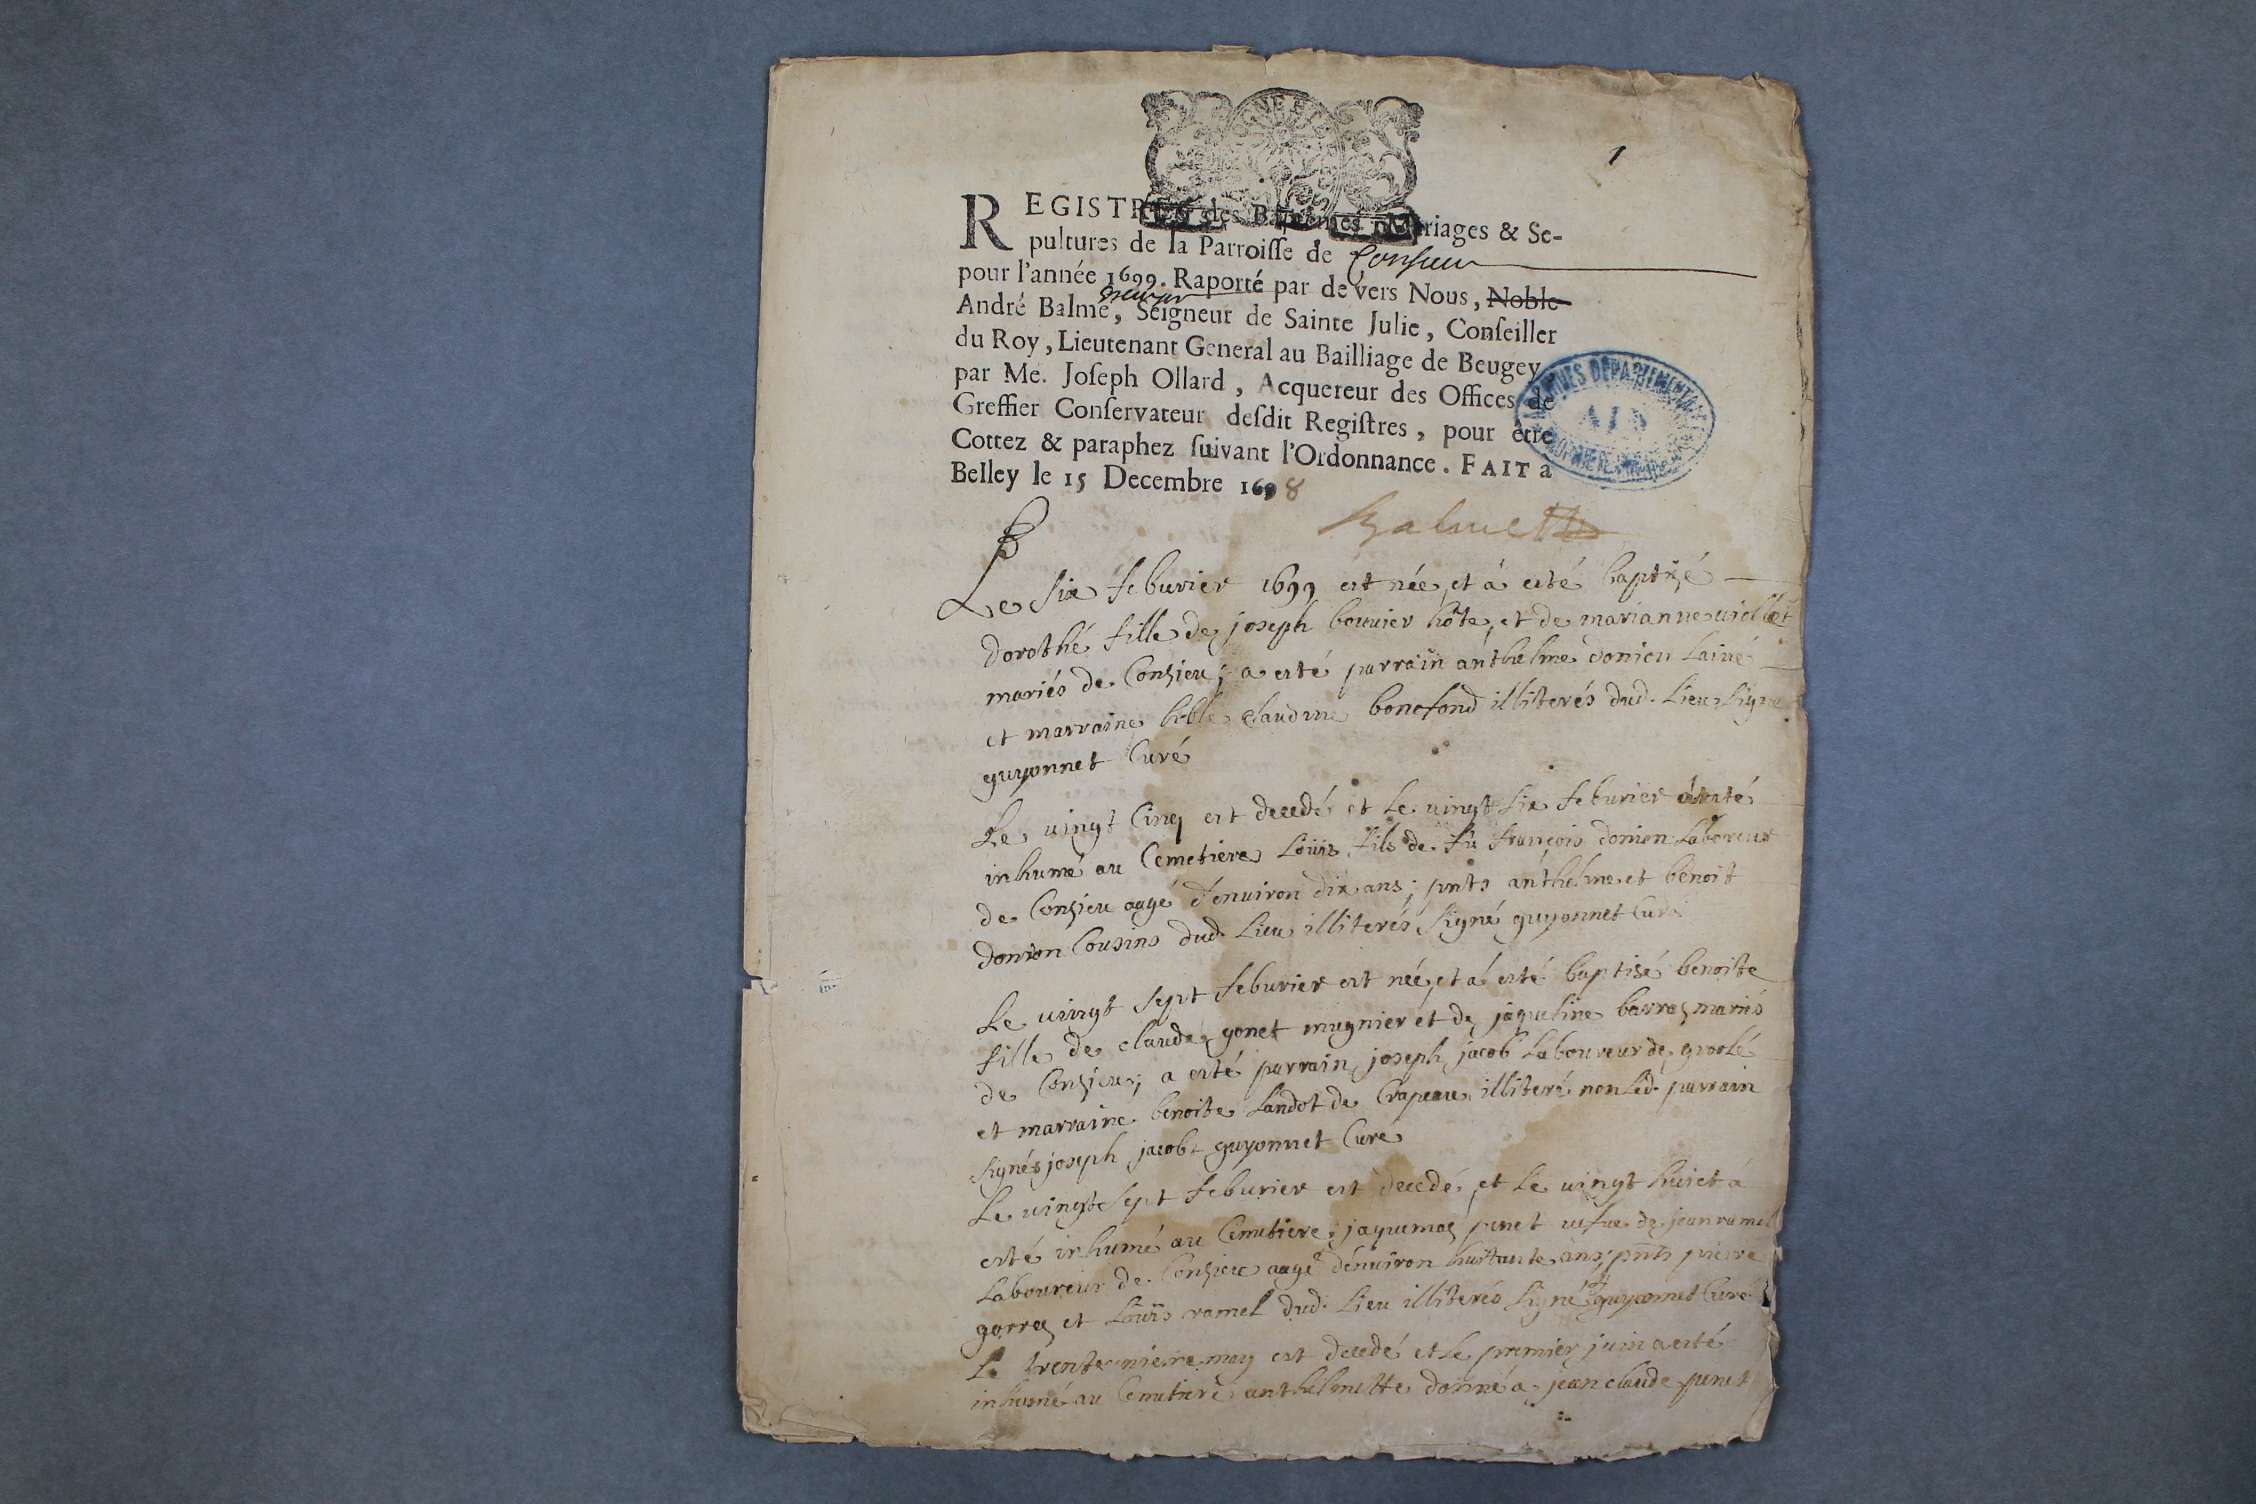 1
REGISTRES des Baptêmes, Mariages & Se-
pultures de la Parroisse de Conzieu
pour l'année 1699. Raporté par de vers Nous, Noble
André Balme, Seigneur de Sainte Julie, Conseiller
du Roy, Lieutenant General au Bailliage de Beugey
par Me. Joseph Ollard, Acquereur des Offices de
Greffier Conservateur desdit Registres, pour être
Cottez & paraphez suivant l'Ordonnance. FAIT a
Belley le 15 Decembre 1698
Balme
ARCHIVES DEPARTEMENTALES
AIN
Le six feburier 1699 est née, et á esté baptizé
dorothé fille de joseph bouuier hôte, et de marianne uiollet
mariés de Conzieu; a esté parrain anthelme donien Lainé
et marraine claudine bonefond illiterés dud. Lieu, signé
guyonnet Curé
Le uingt cinq est decedé et Le uingt six feburier a esté
inhumé au Cemetiere Loüis fils de fû françois donien Laboreur
de Conzieu aagé d'enuiron dix ans; pnts anthelme et benoit
donion Cousins dud. Lieu illiterés, signé guyonnet Curé
Le uingt sept feburier est née, et á esté baptisé benoite
fille de claude gonet mugnier et de jaqueline barraz mariés
de Conzieu; a esté parrain joseph jacob Laboureur de groslé
et marraine benoite Landot de Crapeau illiteré non Led. parrain
signés joseph jacob guyonnet Curé
Le uingt sept feburier est decedé, et Le uingt huict a
esté inhumé au Cemetiere jaquemaz penet uefue de jean ramel
Laboureur de Conzieu aagé d'enuiron huitante ans, pnts pierre
gorraz et Loüis ramel dud. Lieu illiterés signé guyonnet Curé
Le trente may est decedé et Le premier juin a esté
inhumé au Cemetiere anthelmette donné a jean claude penet